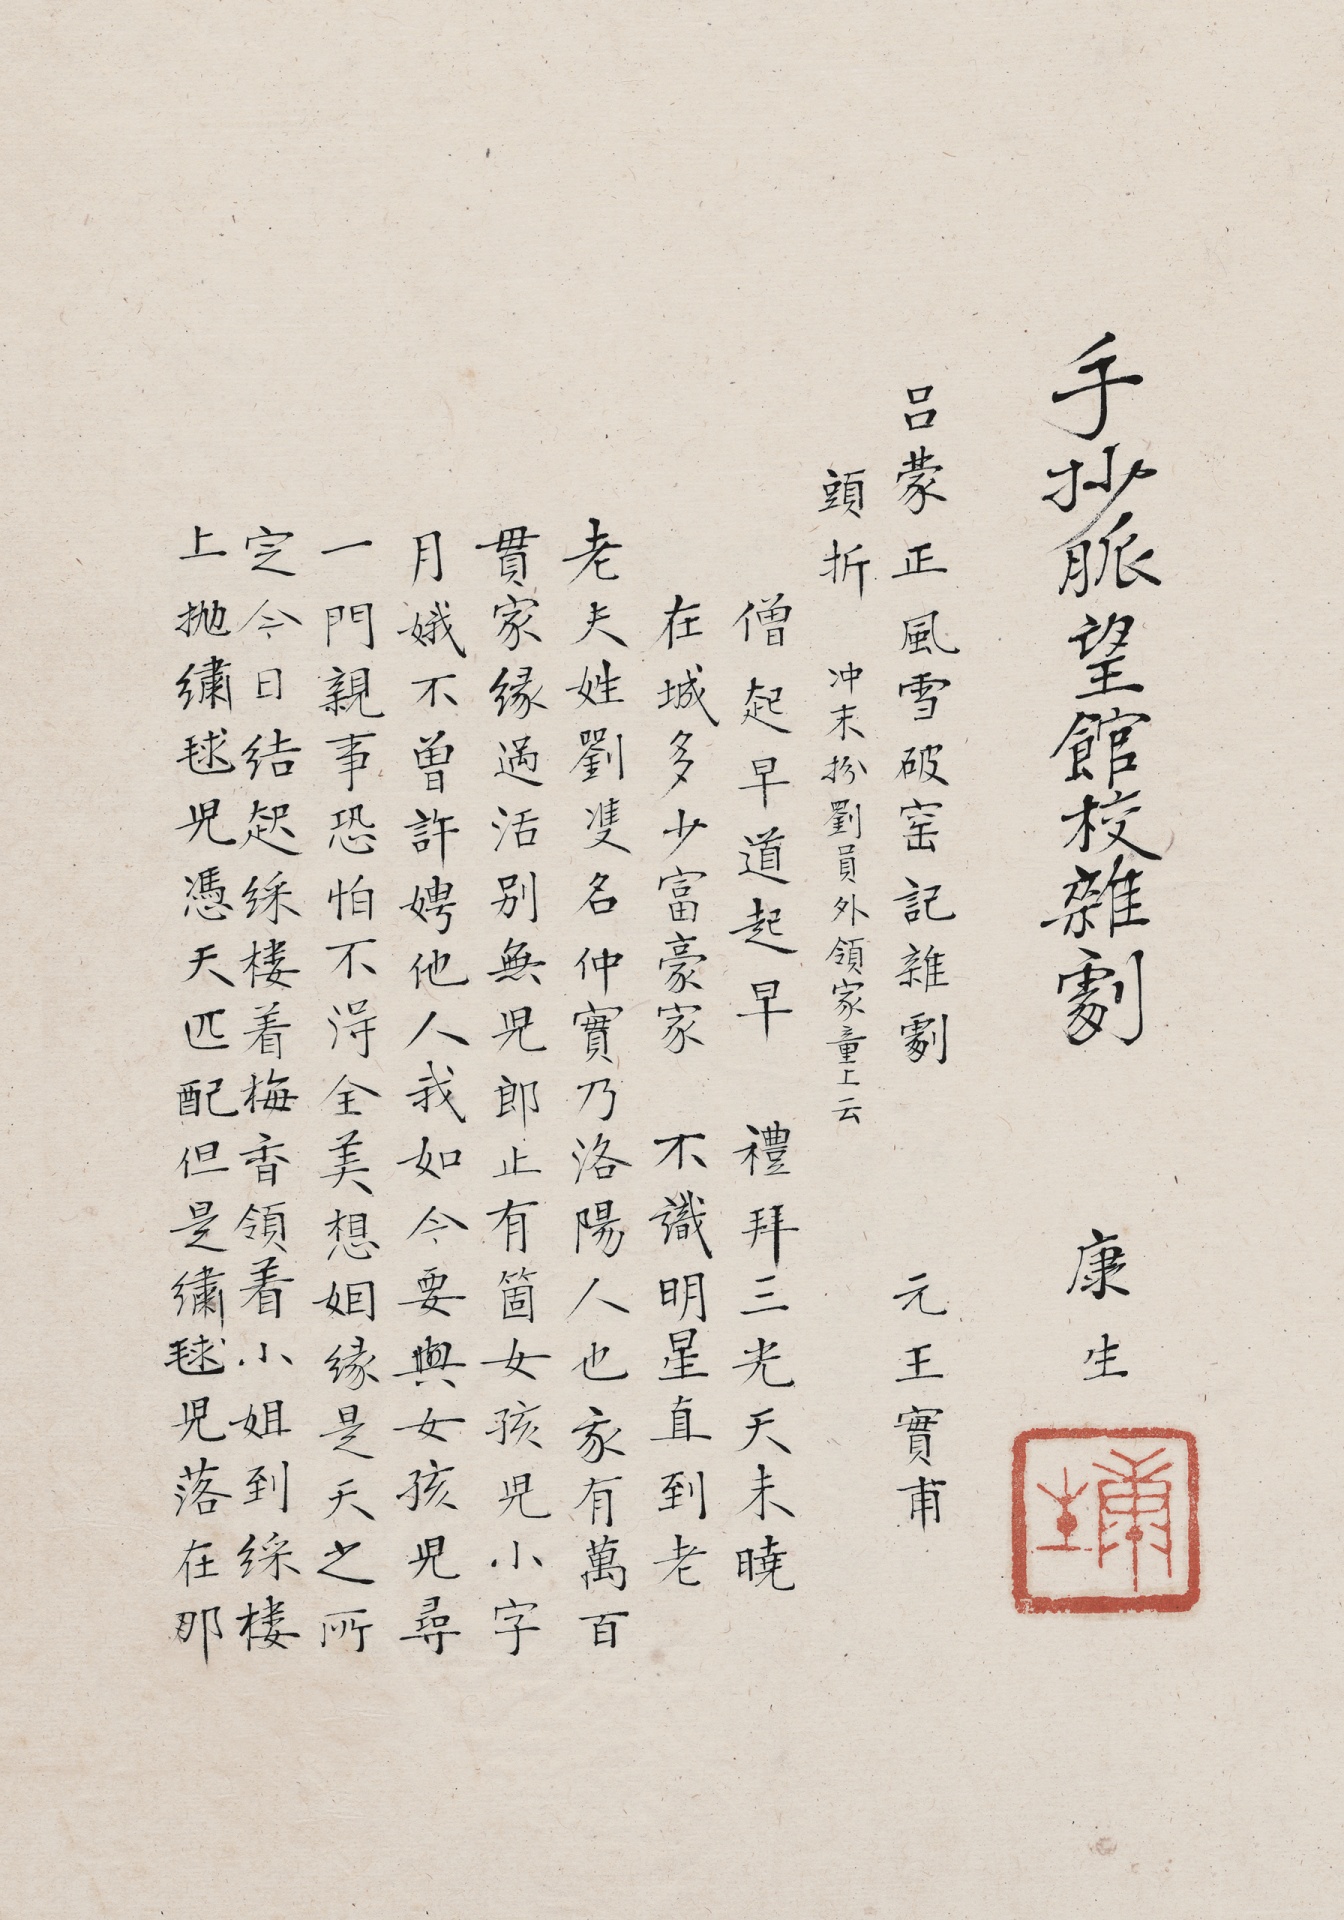 手抄脈望館校雜劇 康生
康生
呂蒙正風雪破窑記雜劇 元王實甫
頭折 冲末扮劉員外領家童上云
僧起早道起早 禮拜三光天未曉
在城多少富豪家 不識明星直到老
老夫姓劉雙名仲實乃洛陽人也家有萬百
貫家緣過活別無児郎止有箇女孩児小字
月娥不曾許娉他人我如今要與女孩児尋
一門親事恐怕不得全美想姻緣是天之所
定今日結起綵楼着梅香領着小姐到綵楼
上抛繡毬児憑天匹配但是繡毬児落在那